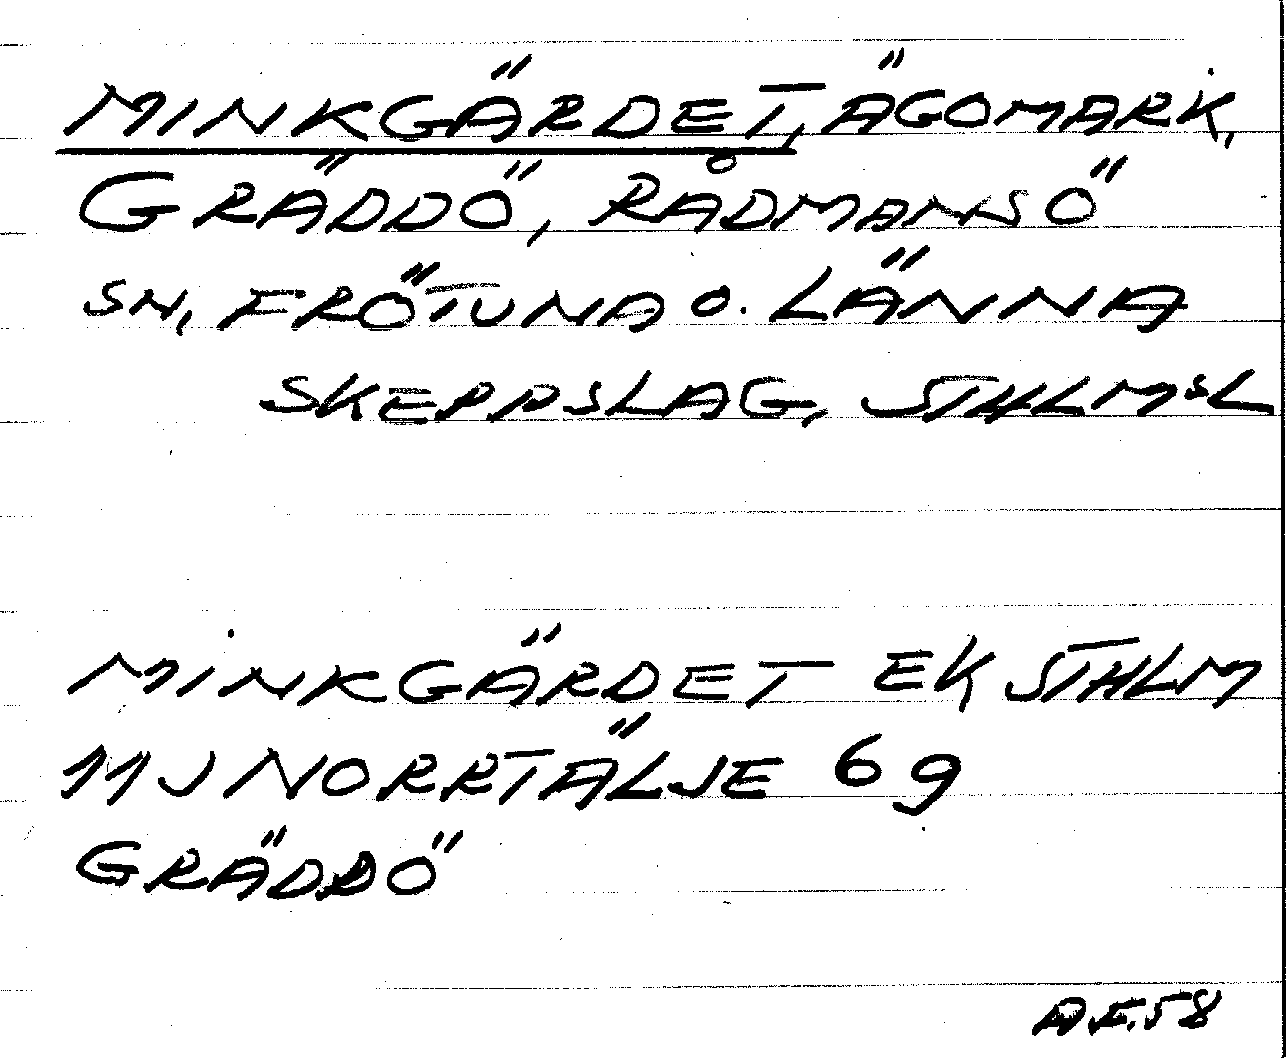 MINKGÄRDET, ÄGOMARK,
GRÄDDÖ, RÅDMANSÖ
SN, FRÖTUNA O. LÄNNA
SKEPPSLAG, STHLMSL
MINKGÄRDET EK STHLM
11J NORRTÄLJE 6g
GRÄDDÖ
A.F. 58